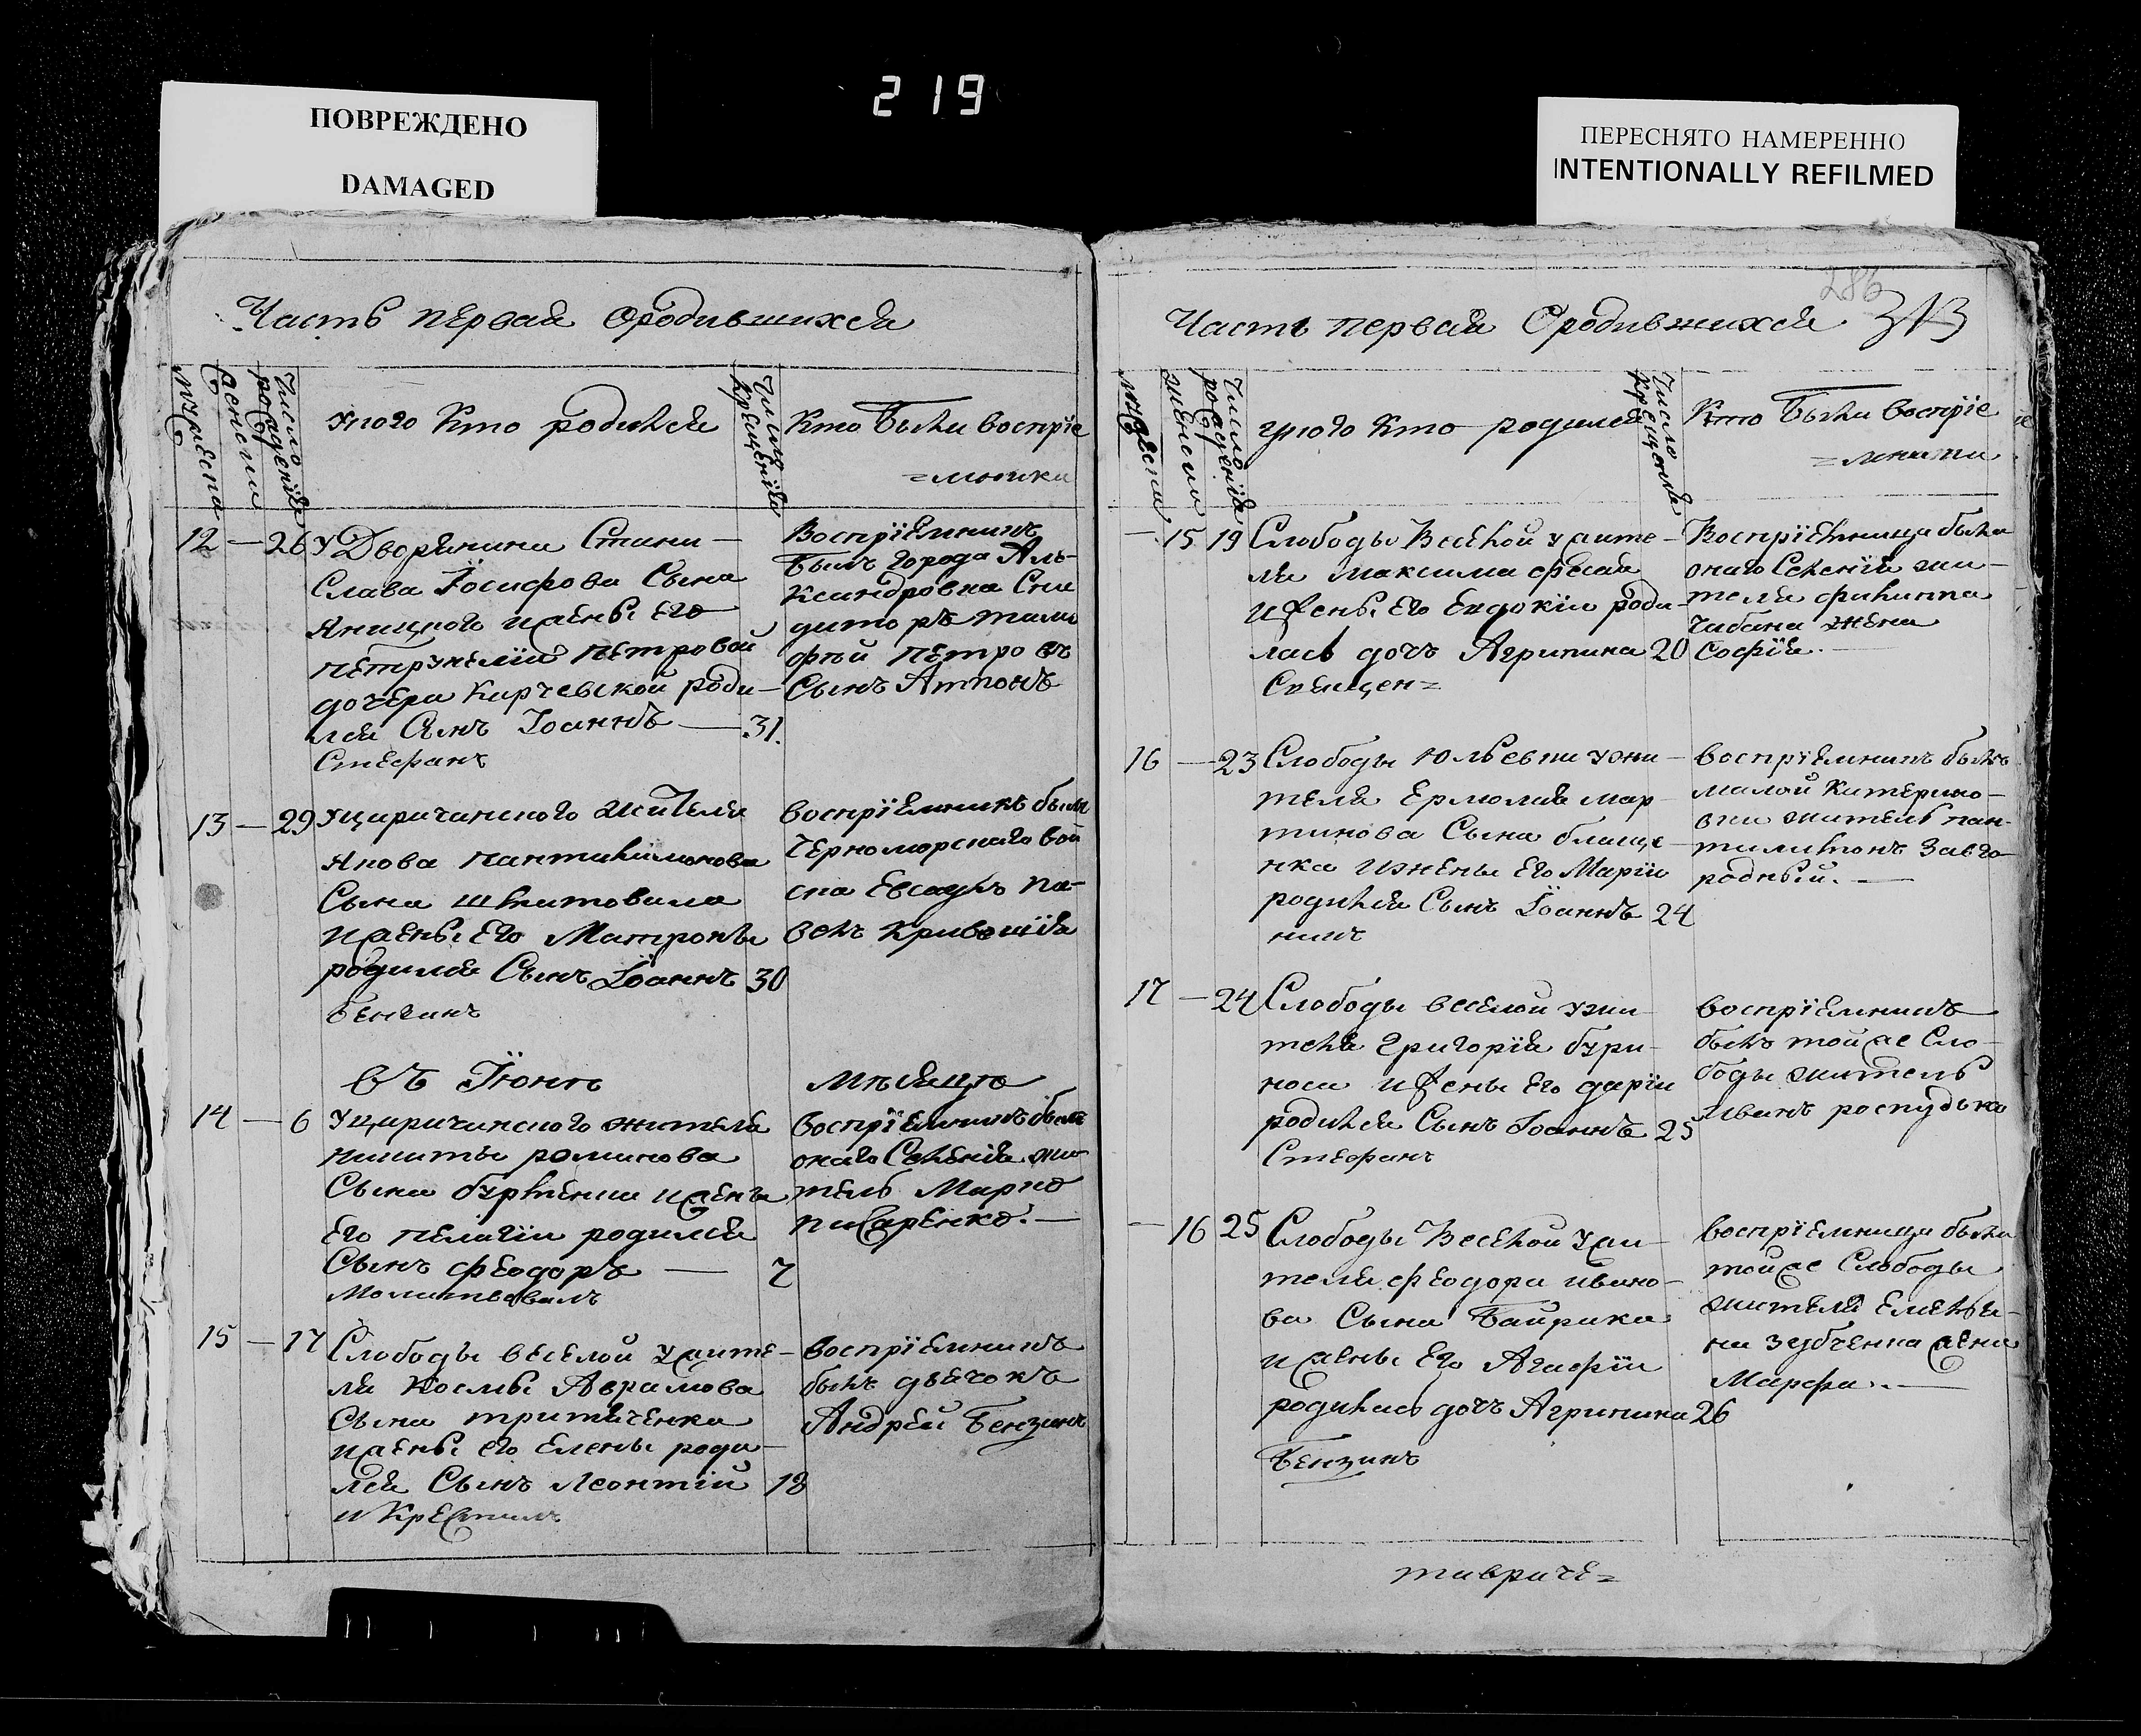 219
ПОВРЕЖДЕНО
DAMAGED
ПЕРЕСНЯТО НАМЕРЕННО
INTENTIONALLY REFILMED
Часть первая Ородившихся
Число рожденія
Укого Кто родился
Число крещенія
Кто Были воспріе
=мники
12 — 26 У Дворянина Стани-
Слава Іосифова Сына
ижены Его
Петровой
дочери роди-
лся Сынъ Іоаннъ — 31.
Стефанъ
Воспріемникъ
Былъ города Але-
ксандровка
Петровъ
Сынъ Антонъ
13 — 29 Уцаричанского Жителя
Якова Пантилимонова
Сына
ижены Его Матроны
родился Сынъ Іоаннъ 30
Бензинъ
воспріемникъ былъ
Черноморскаго вой
ска Есаулъ Па-
велъ
въ Іюнѣ мѣсяцѣ
14 — 6 Уцаричанского жителя
никиты романова
Сына ижены
Его пелагіи родился
Сынъ феодоръ — 7
Молитвовалъ
воспріемникъ былъ
онаго Селенія жи
тель Марко
писаренко. —
15 — 17 Слободы веселой ужите-
ля Космы Аврамова
Сына
ижены его Елены роди-
лся Сынъ Леонтій 18
и Крестилъ
воспріемникъ
былъ дьячокъ
Андрей Бензинъ
286
313
Часть первая Ородившихся
Число рожденія
Укого Кто родился
Число крещенія
Кто Были воспріе
=мники
— 15 19 Слободы Веселой ужите-
ля Максима
ижены Его Евдокіи роди-
лась дочъ Агрипина 20
Священ=
Воспріемница была
онаго Селенія жи-
теля филипа
Чабана жена
Софія. —
16 — 23 Слободы Юльевки ужи-
теля Ермолая Мар-
тинова Сына
ижены Его Маріи
родился Сынъ Іоаннъ 24
никъ
воспріемникъ былъ
малой Катерино-
вки житель пан-
тилимонъ Завго-
родный. —
17 — 24 Слободы веселой ужи-
теля григорія бури-
коса ижены Его даріи
родился Сынъ Іоаннъ 25
Стефанъ
воспріемникъ
былъ тойже Сло-
боды житель
Иванъ
— 16 25 Слободы Веселой ужи-
теля феодора ивано-
ва Сына Байрака
ижены Его Агафіи
родилась дочъ Агрипина 26
Бензинъ
воспріемница была
тойже Слободы
жителя Емелья-
на зубченка жена
Марфа. —
тавриче=